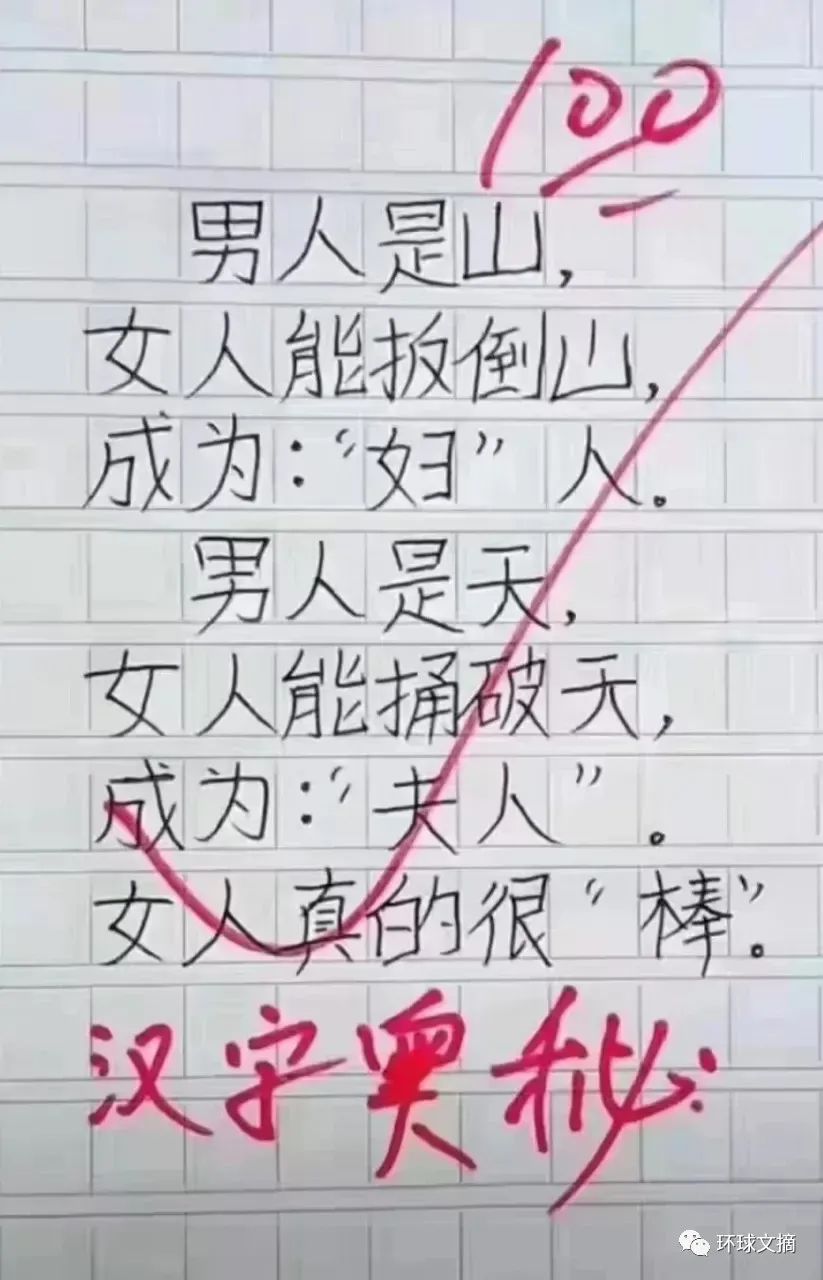 100
男人是山,
女人能扳倒山,
成为:“妇”人。
男人是天,
女人能捅破天,
成为:“夫人”。
女人真的很“棒”。
汉字奥秘
环球文摘